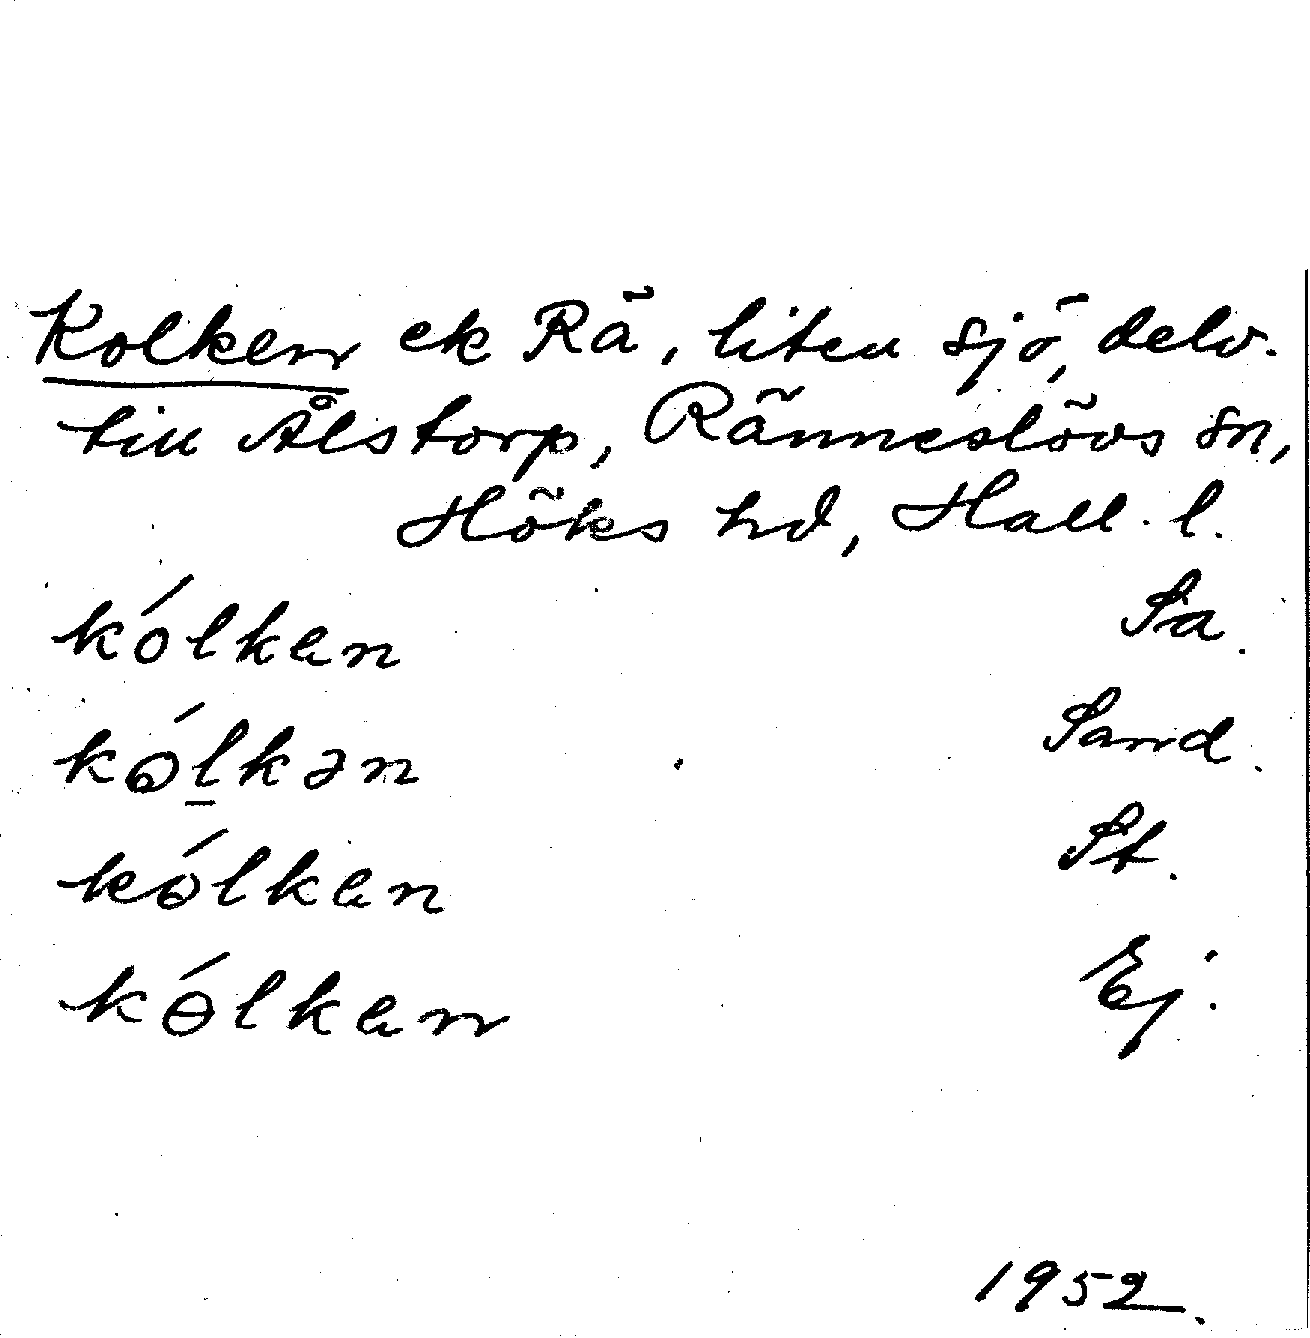 Kolken ek Rä, liten sjö, delv.
till Ålstorp, Ränneslövs sn,
Höks hd, Hall. l.
kólkan Sa.
kólkən Sand.
kólkan St.
kólkan Ej.
1952.